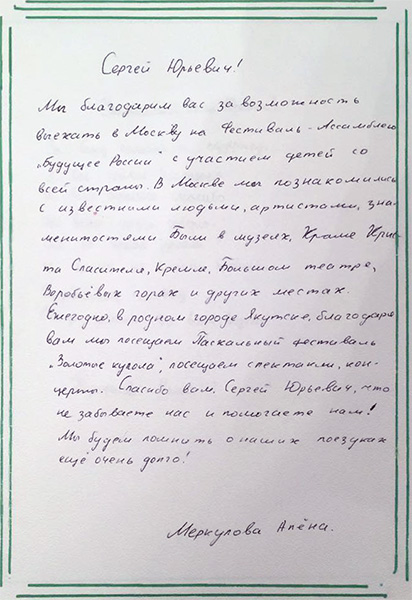 Сергей Юрьевич!
Мы благодарим вас за возможность
выехать в Москву на Фестиваль - Ассамблею
„Будущее России" с участием детей со
всей страны. В Москве мы познакомились
с известными людьми, артистами, зна-
менитостями Были в музеях, Храме Хрис-
та Спасителя, Кремле, Большом театре,
Воробьёвых горах и других местах.
Ежегодно, в родном городе Якутске, благодаря
вам мы посещаем Пасхальный фестиваль
„Золотые купола", посещаем спектакли, кон-
церты. Спасибо вам, Сергей Юрьевич, что
не забываете нас и помогаете нам!
Мы будем помнить о наших поездках
ещё очень долго!
Меркулова Алёна.